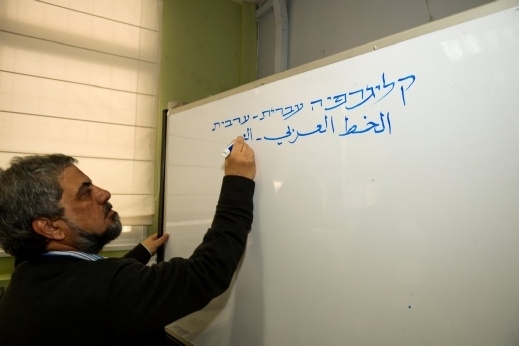 קליגרפיה עברית - ערבית
الخط العربي - الع